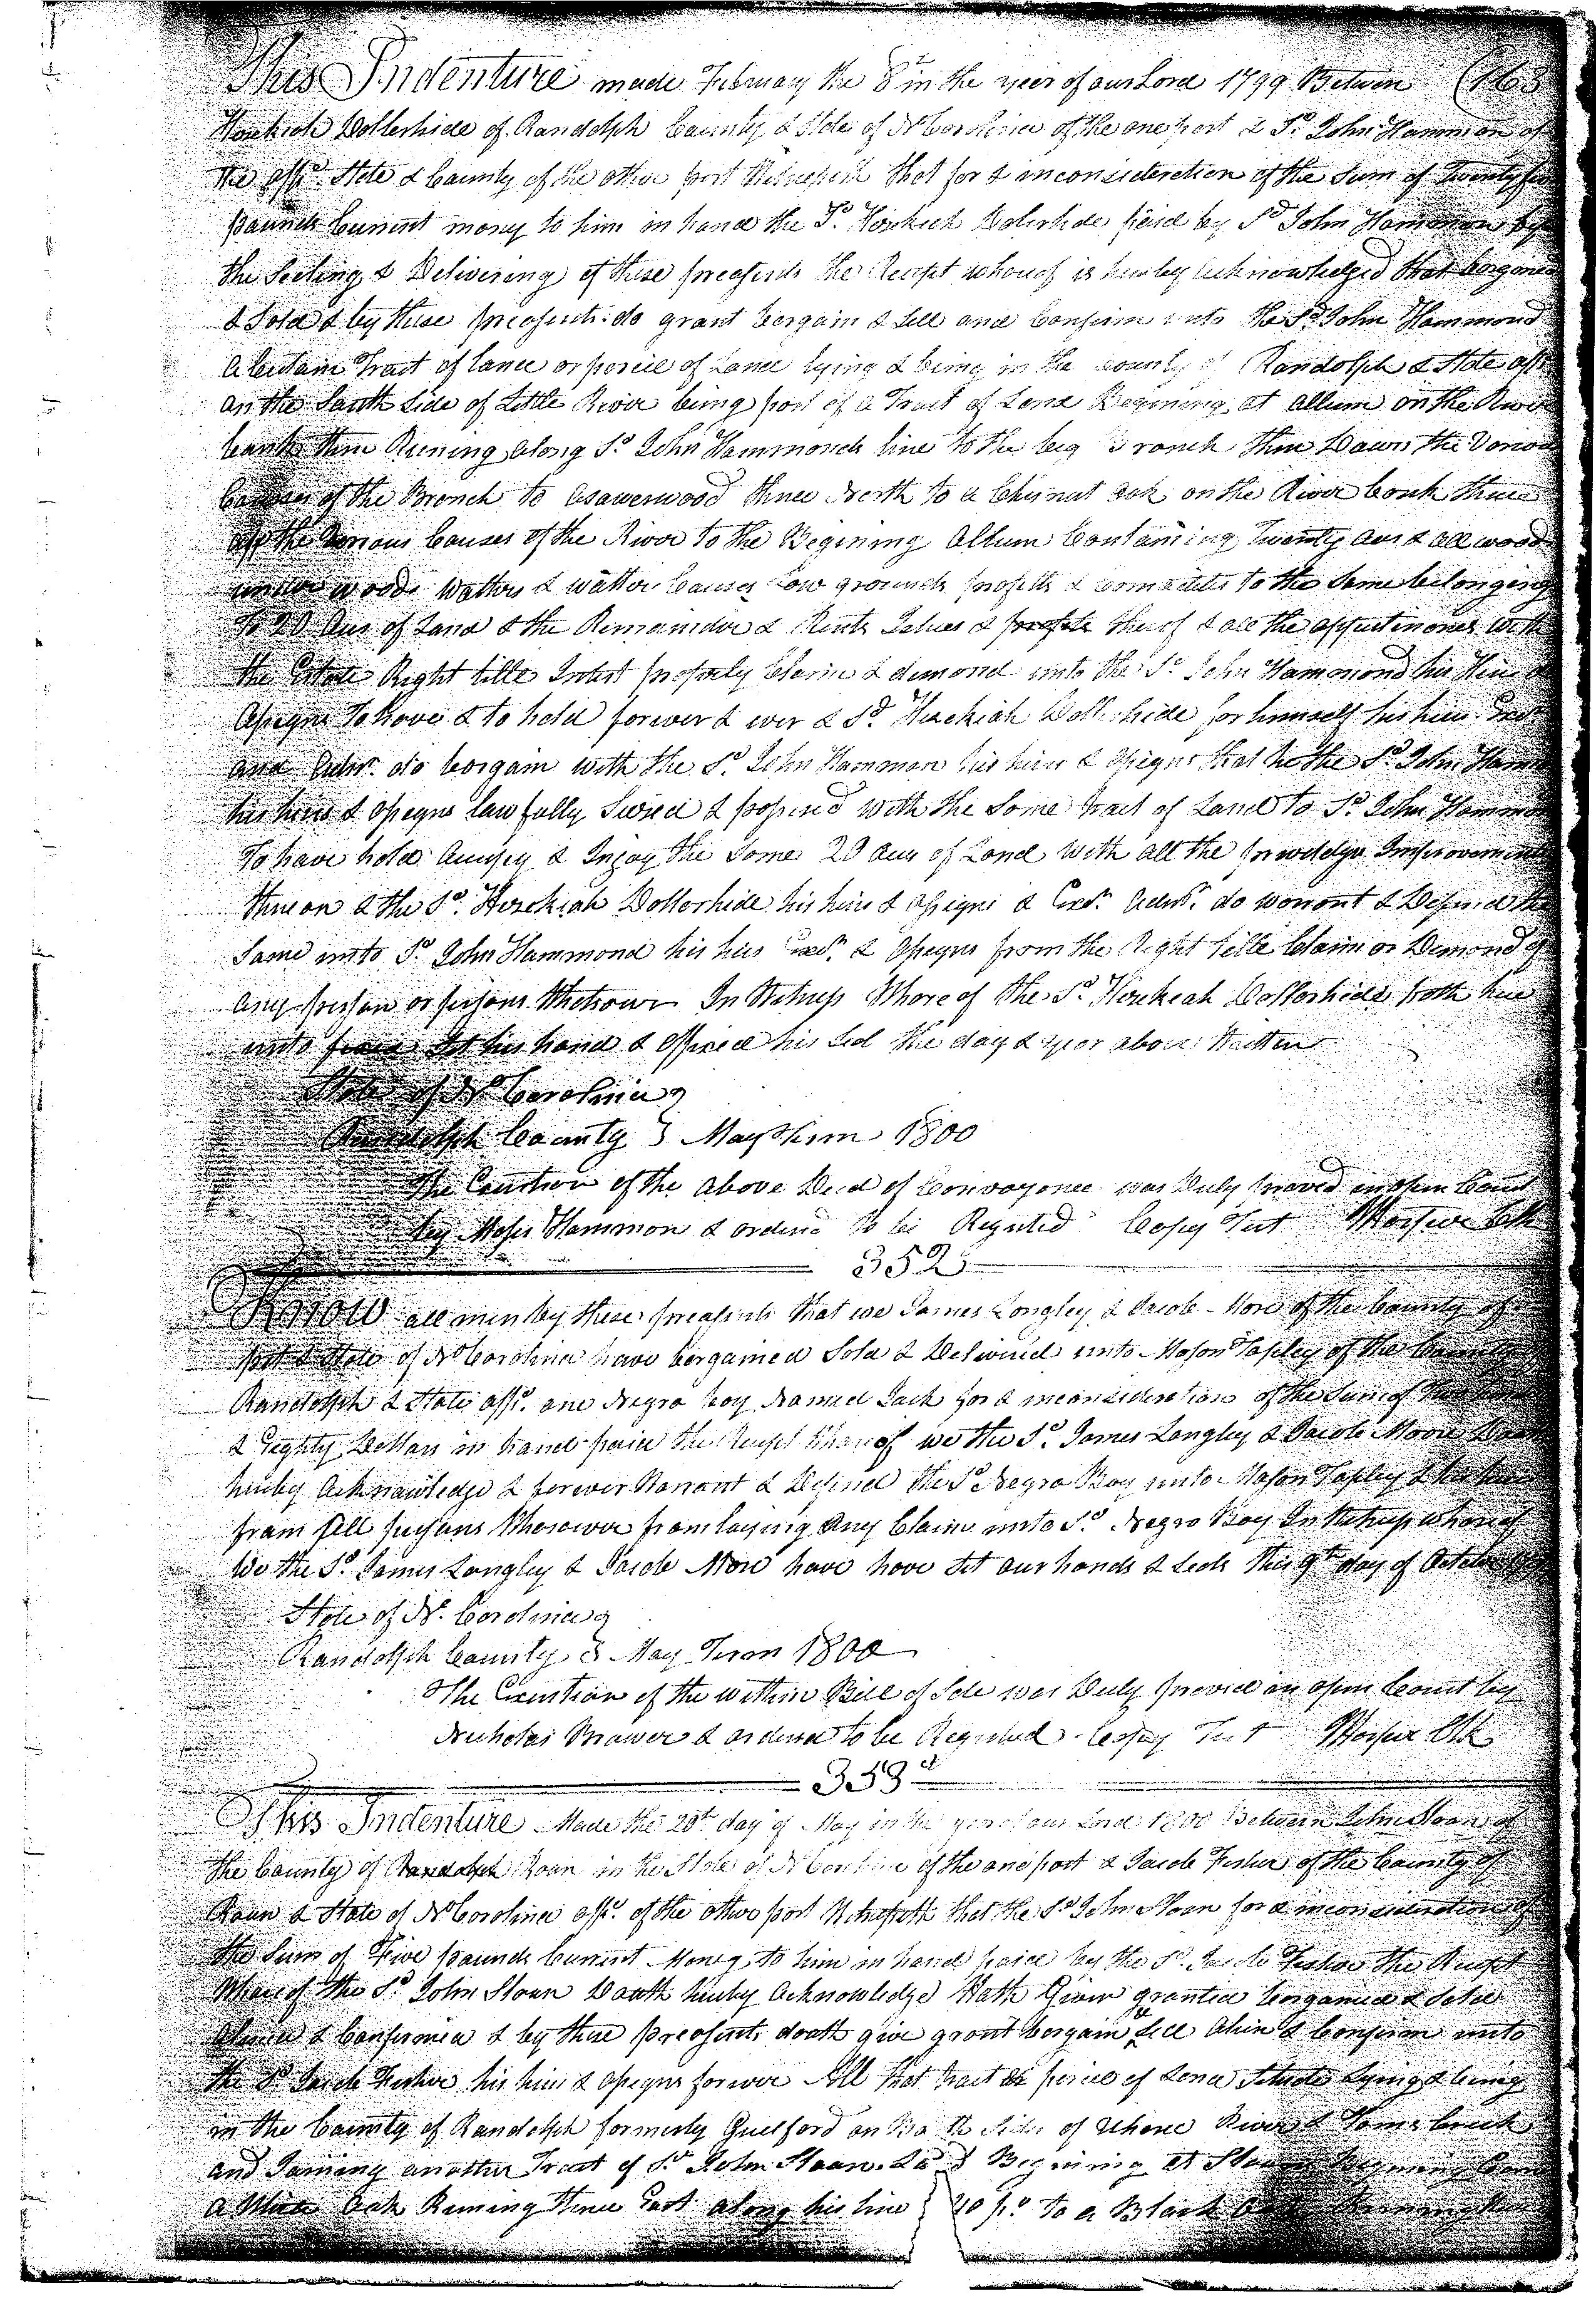 This Indenture made February the 8th in the year of our Lord 1799 Between (163
Hezekiah Dollerhide of Randolph County & State of N Carolina of the one part & Sd. John Hammon of
the affd. State & County of the other part Witnesseth that for & in consideration of the Sum of Twenty
pounds Current money to him in hand the Sd. Hezekiah Dolerhide paid by Sd John Hammon by
the Seeling & Delivering of these presents the Recept whereof is hereby Acknowledged that bargained
& Sold & by these presents do grant bargain & Sell and Confirm unto the Sd John Hammond
a Certain Tract of land or parcel of Land lying & being in the County of Randolph & State affd
on the South Side of Little River being part of a Tract of Land Begining at allum on the River
bank then Runing along Sd John Hammonds line to the big Branch then Down the Various
Courses of the Branch to asawerwood thence North to a Chesnut oak on the River bank thence
up the Various Courses of the River to the Begining Allum Containing Twenty Acrs & all wood
under woods Watters & watter Causes Low grounds profits & comodites to the Same belonging
To 20 Acrs of Land & the Remainder & Rents Ishues & profits thereof & all the appurtinances with
the Estate Right title Intrest property Claim & demand unto the Sd. John Hammond his Heirs &
Assigns To have & to hold forever & ever & Sd. Hezekiah Dollerhide for himself his heirs Exrs
and Admr. do bargain with the Sd. John Hammon his heirs & assigns that he the Sd. John Hammon
his heirs & assigns lawfully Siezed & possessed with the Same tract of Land to Sd. John Hammon
To have hold & Injoy the Same 20 Acrs of Land with all the privildges Improvements
thereon & the Sd. Hezekiah Dollorhide his heirs & assigns & Exer. Admr. do warrant & Defend the
Same unto Sd John Hammond his heirs Exer. & Assigns from the Right title Claim or Demand of
any person or persons Whatsoever In Witness Whereof the Sd. Hezekiah Dollorhide hath here
unto set his hand & affixed his Seal the day & year above Written
State of N Carolina
Randolph County } May Term 1800
The Execution of the above Deed of Convayance was Duly proved in open Court
by Moses Hammon & orderd to be Registed Copy Test Harper Clk
352
Know all men by these presents that we James Langley & Jacob More of the County of
& State of N Carolina have bargained Sold & Delivered unto Mason Tapley of the County
Randolph & State affd. one Negro boy Named Jack for & in consideration of the Sum of
& Eighty Dollars in hand paid the Recept Whereof we the Sd. James Langley & Jacob Moore
hereby Acknowledge & forever Warrant & Defend the Sd Negro Boy unto Mason Tapley & his heirs
from all persons Whosoever from laying any Claim unto Sd. Negro Boy In Witness whereof
We the Sd. James Langley & Jacob More have have Set our hands & Seals this 9th day of October
State of N. Carolina
Randolph County } May Term 1800
The Execution of the within Bill of Sale was Duly proved in open Court by
Nicholas Brawer & orderd to be Registed Copy Test Harper Clk
353d
This Indenture Made the 20th day of May in the year of our Lord 1800 Between John Sloan of
the County of Randolph Roan in the State of N Carolina of the one part & Jacob Fisher of the County of
Roan & State of N Carolina affd. of the other part Witnesseth that the Sd John Sloan for & in consideration of
the Sum of Five pounds Current Money to him in hand paid by the Sd. Jacob Fisher the Recept
Whereof the Sd John Sloan Doath hereby Acknowledge Hath Given granted bargained & Sold
Aliened & Confirmed & by these presents doath give grant bargain & Sell Alien & Confirm unto
the Sd Jacob Fisher his heirs & assigns forever All that tract or parcel of Land Setuate Lying & being
in the County of Randolph formerly Guilford on Both Sides of Uharie River & Toms Creek
and Joining another Tract of Sd John Sloan Land Begining at Sloans
a White Oak Runing thence East along his line 40 po. to a Black Oak Runing then